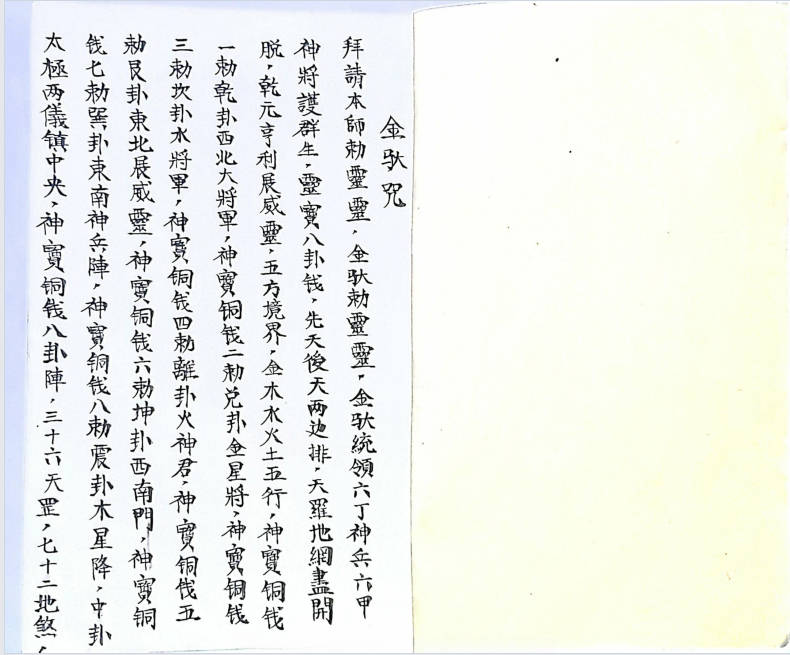 金馱咒
拜請本師勅靈靈，金馱勅靈靈，金馱統領六丁神兵六甲
神將護群生，靈寶八卦钱，先天後天两边排，天羅地網盡開
脱，乾元亨利展威靈，五方境界，金木水火土五行，神寶铜钱
一勅乾卦西北大將軍，神寶铜钱二勅兑卦金星將，神寶铜钱
三勅坎卦水將軍，神寳铜钱四勅離卦火神君，神寳铜钱五
勅艮卦東北展威靈，神寳铜钱六勅坤卦西南門，神寳铜
钱七勅巽卦東南神兵陣，神寳铜钱八勅震卦木星降，中卦
太極两儀镇中央，神寳铜钱八卦陣，三十六天罡，七十二地煞，